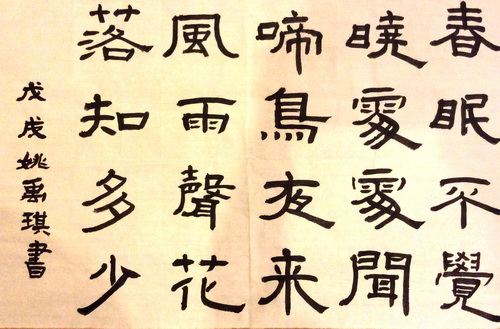 春眠不覺
曉處處聞
啼鳥夜来
風雨聲花
落知多少
戊戌姚禹琪書